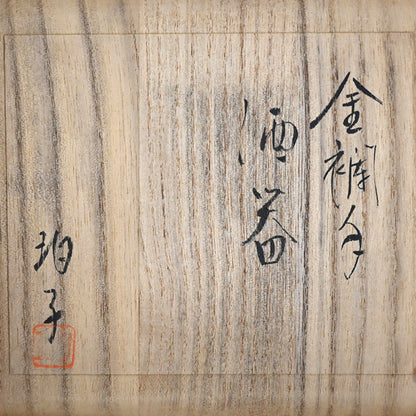 金襴手
酒器
珀子